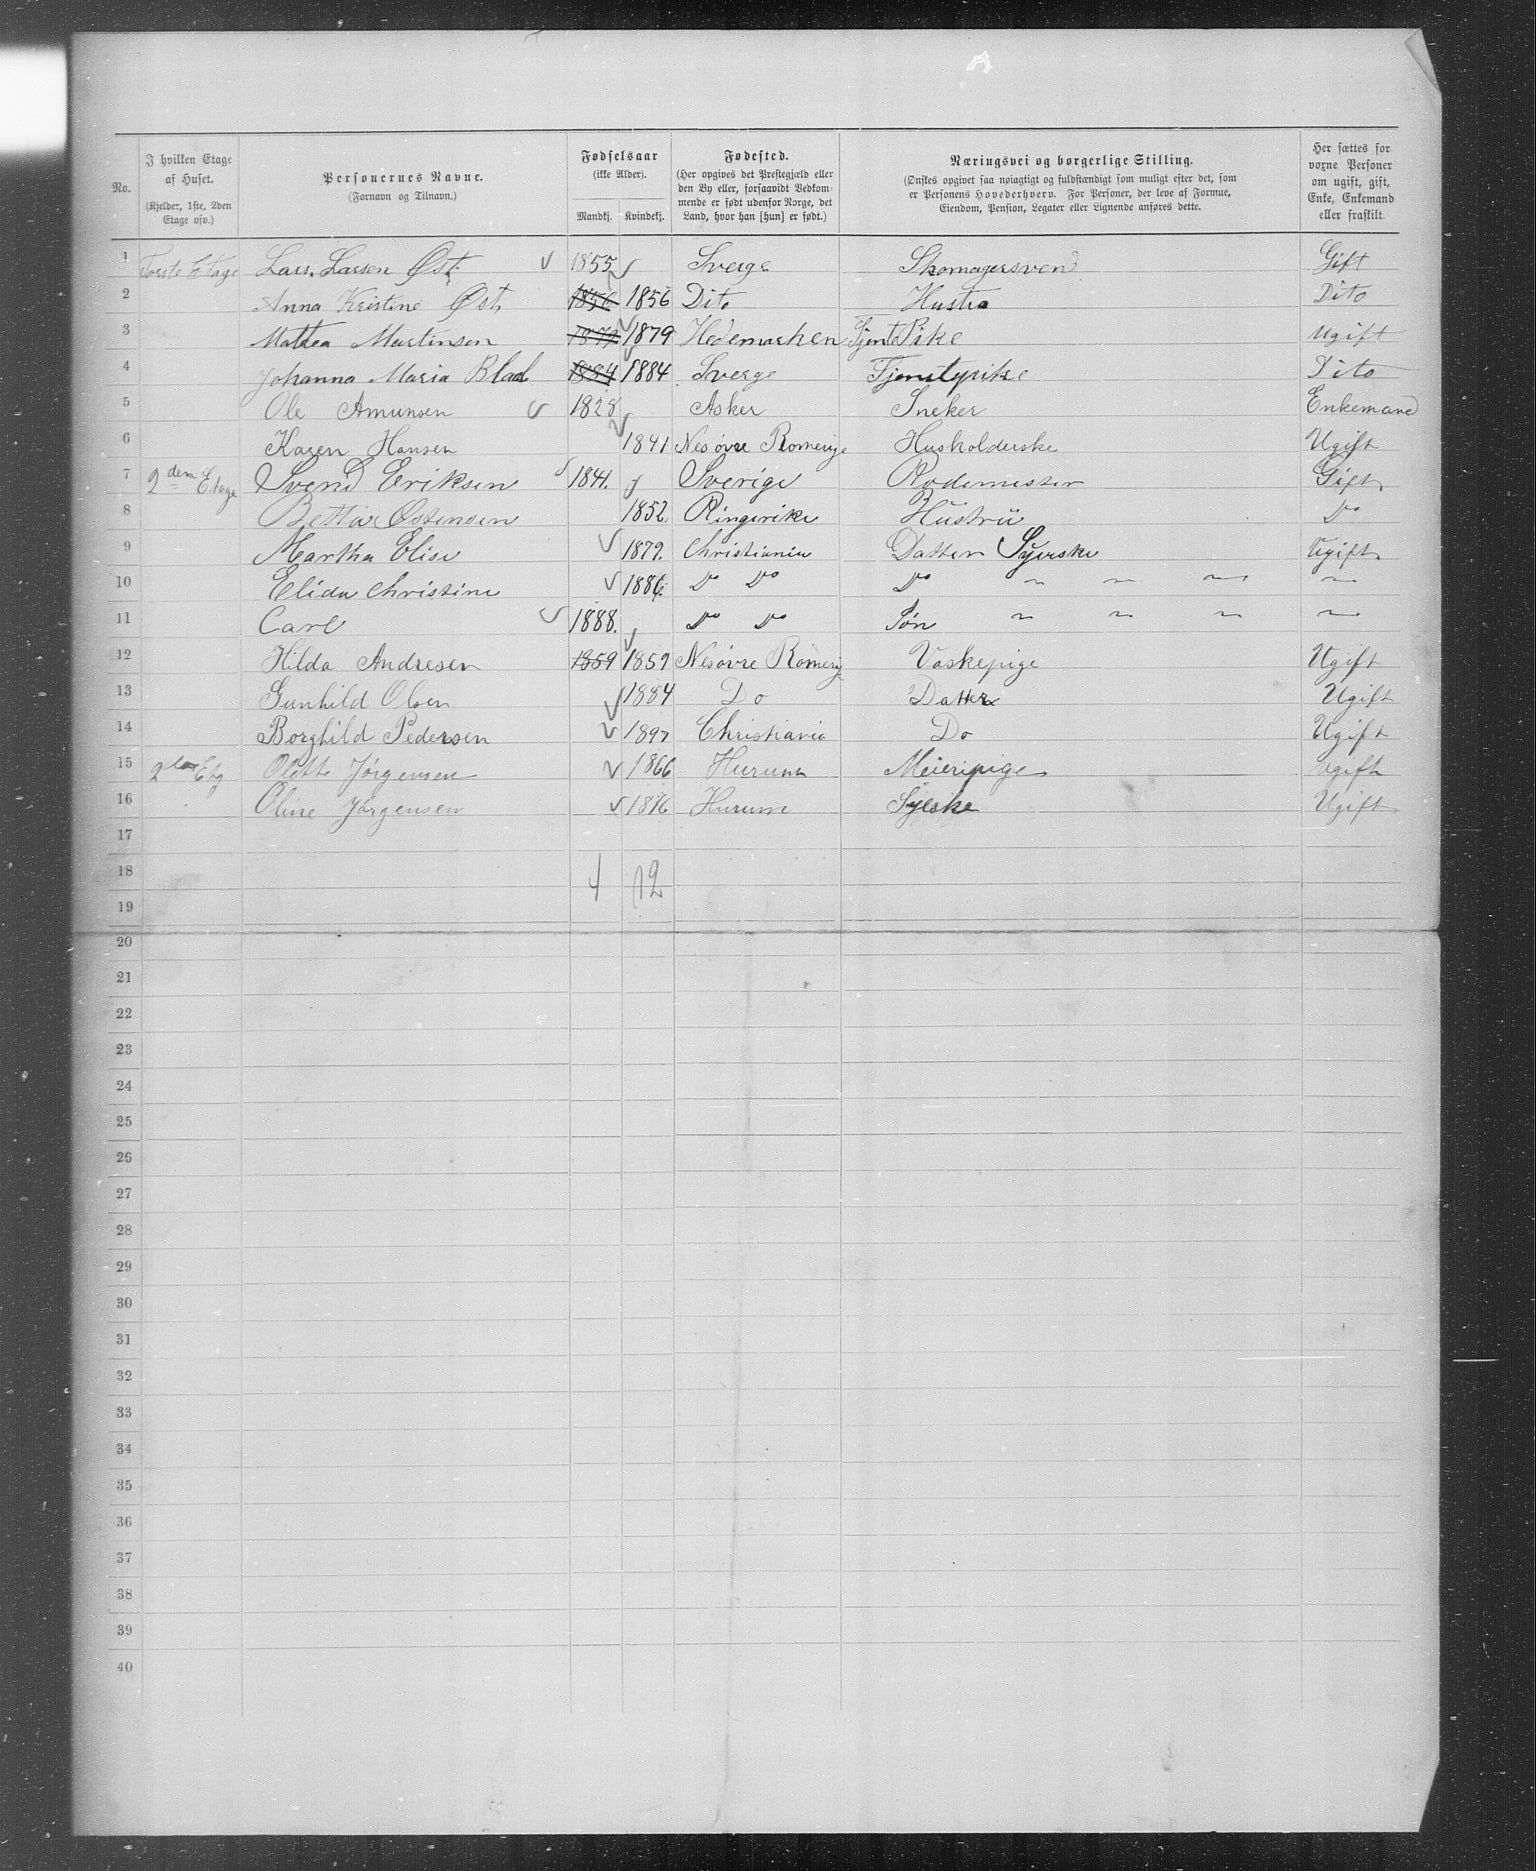 No. I hvilken Etage af Huset. (Kjelder, 1ste, 2den Etage osv.) Personernes Navne. (Fornavn og Tilnavn.) Fødselsaar (ikke Alder). Mandkj. Kvindekj. Fødested. (Her opgives det Prestegjæld eller den By eller, forsaavidt Vedkommende er født udenfor Norge, det Land, hvor han [hun] er født.) Næringsvei og borgerlige Stilling. (Ønskes opgivet saa nøiagtigt og fuldstændigt som muligt efter det, som er Personens Hovederhverv. For Personer, der leve af Formue, Eiendom, Pension, Legater eller Lignende anføres dette. Her sættes for voxne Personer om ugift, gift, Enke, Enkemand eller fraskilt.
1 Første Etage Lars Larsen Øst 1855 Sverge Skomagersvend Gift
2 Anna Kristine Øst 1856 1856 Dito Hustro Dito
3 Mathea Martinsen 1879 1879 Hedemarken Tjente Pike Ugift
4 Johanna Maria Blad 1884 1884 Sverge Tjenstepike Dito
5 Ole Amunsen 1828 Asker Sneker Enkemand
6 Karen Hansen 1841 Nesøvre Romerige Husholderske Ugift
7 2den Etage Svend Eriksen 1841. Sverige Rodemester Gift
8 Betta Østensen 1852. Ringerike Hustru Do
9 Martha Elise 1879. Christiania Datter Syerske Ugift
10 Elida Christine 1886. Do Do Do " " " "
11 Carl 1888. Do Do Søn " " " "
12 Hilda Andresen 1859 1859 Nesøvre Romerig Vaskepige Ugift
13 Gunhild Olsen 1884 Do Datter Ugift
14 Borghild Pedersen 1897 Christiania Do Ugift
15 Etg Olette Jørgensen 1866 Hurum Meieripige Ugift
16 Oline Jørgensen 1876 Hurum Syeske Ugift
17
18 4 12
19
20
21
22
23
24
25
26
27
28
29
30
31
32
33
34
35
36
37
38
39
40